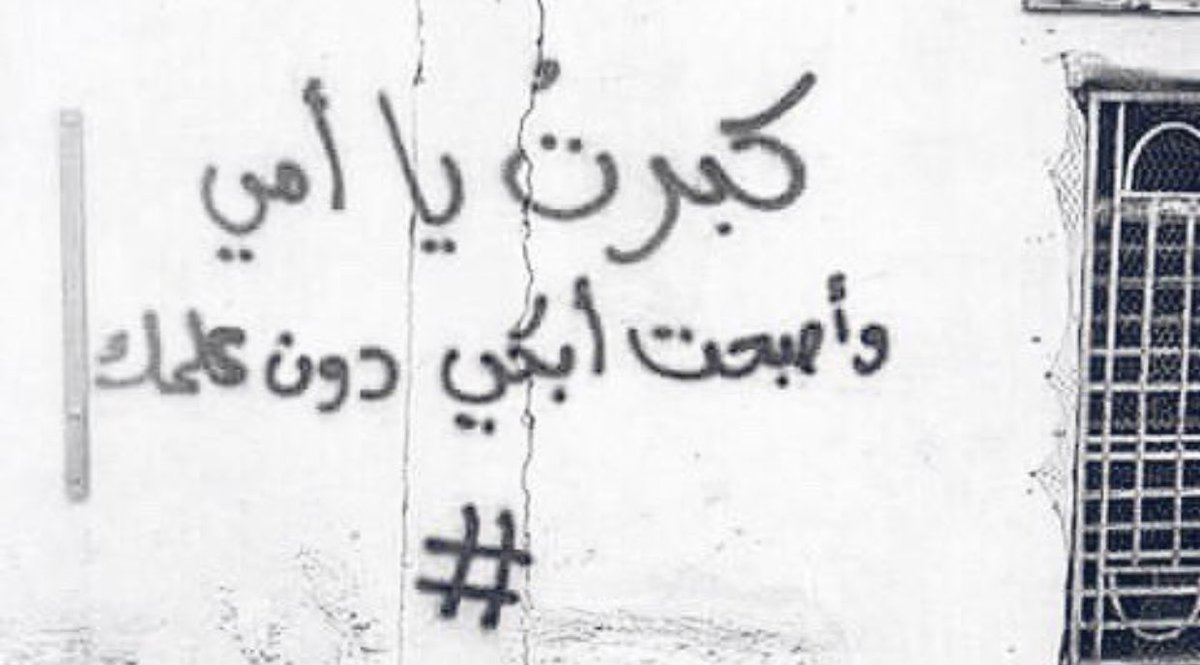 كبرتُ يا أمي
وأصبحت أبكي دون علمك
#